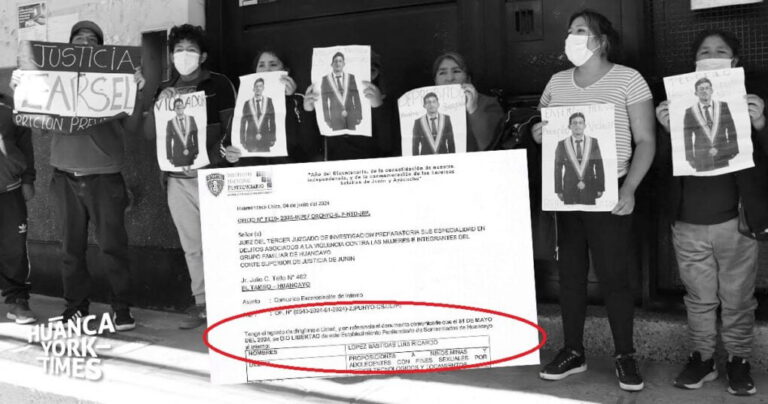 JUSTICIA
CARSEL
PRICION PREV
"Año del Bicentenario, de la consolidación de nuestra
independencia, y de la conmemoración de las heroicas
batallas de Junín y Ayacucho"
Huamancaca Chico, 04 de junio del 2024
Señor (a)
JUEZ DEL TERCER JUZGADO DE INVESTIGACION PREPARATORIA SUB ESPECIALIDAD EN
DELITOS ASOCIADOS A LA VIOLENCIA CONTRA LAS MUJERES E INTEGRANTES DEL
GRUPO FAMILIAR DE HUANCAYO
CORTE SUPERIOR DE JUSTICIA DE JUNIN
Jr. Julio C. Tello N° 462
EL TAMBO – HUANCAYO
Asunto : Comunica Excarcelación de Interno
Tengo el agrado de dirigirme a Usted, y en referencia al documento comunicarle que el 31 DE MAYO
DEL 2024, se DIO LIBERTAD de este Establecimiento Penitenciario de Sentenciados de Huancayo
al interno:
NOMBRES LOPEZ BASTIDAS LUIS RICARDO
PROPOSICIONES A NIÑOS,NIÑAS Y
ADOLESCENTES CON FINES SEXUALES POR
MEDIOS TECNOLOGICOS Y TOCAMIENTOS
HUANCA
YORK
TIMES